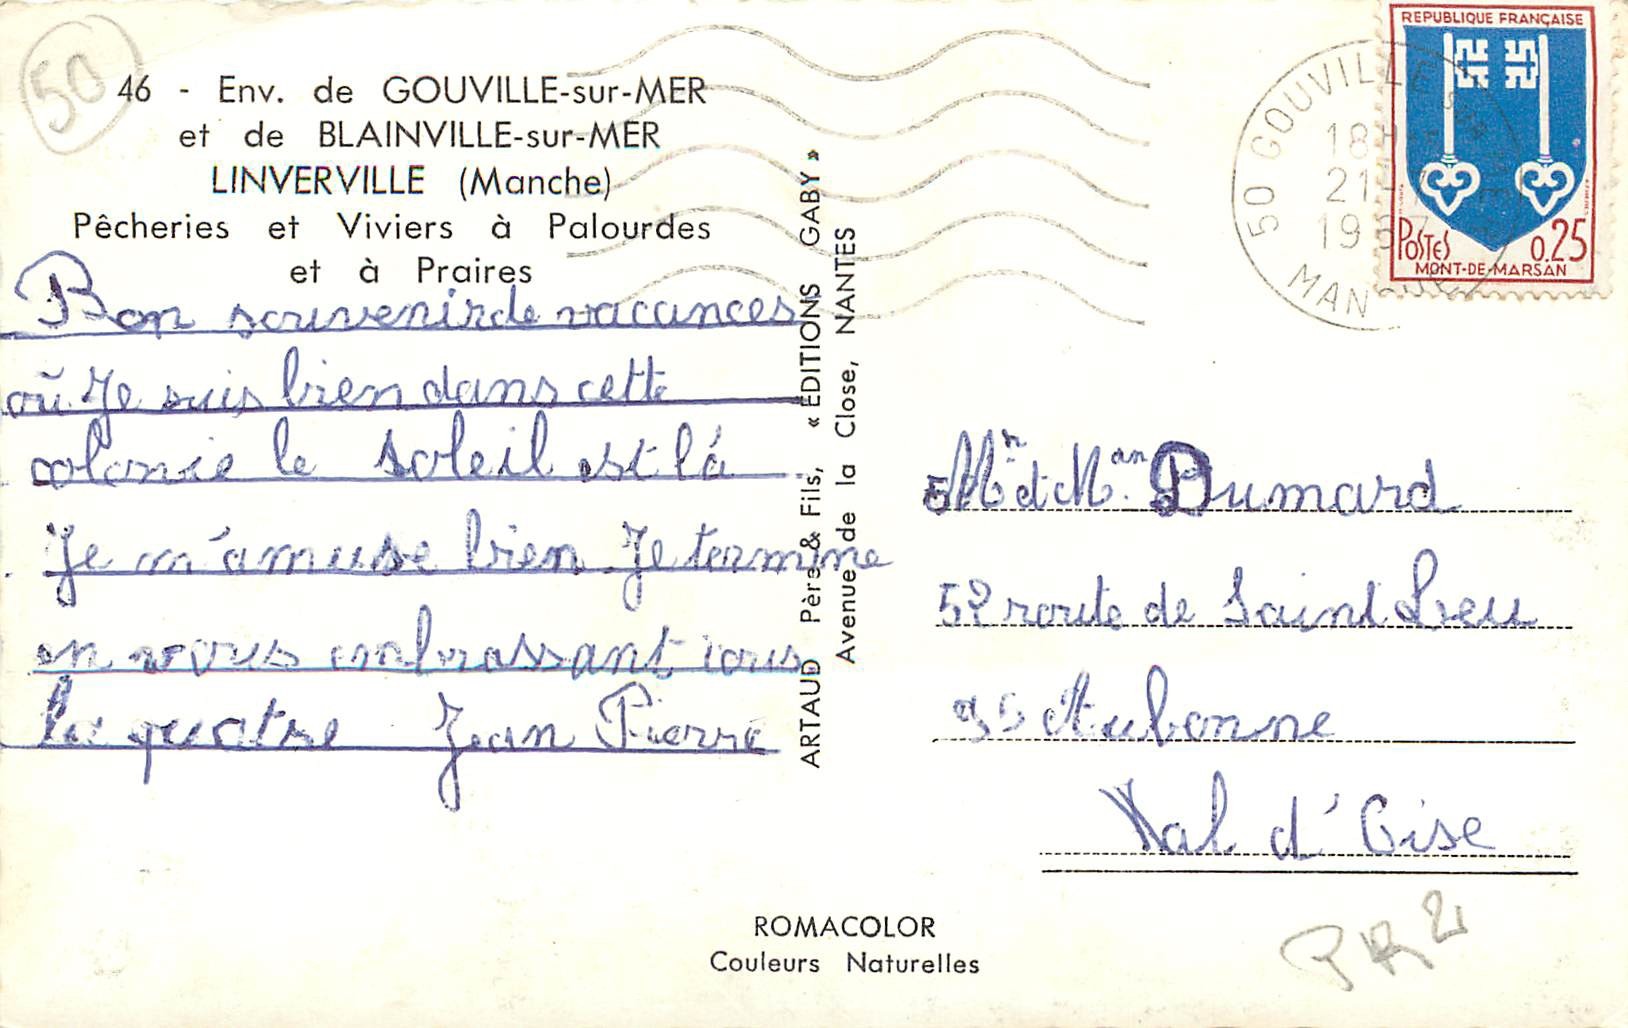 50
46 - Env. de GOUVILLE-sur-MER
et de BLAINVILLE-sur-MER
LINVERVILLE (Manche)
Pêcheries et Viviers à Palourdes
et à Praires
Bon souvenir de vacances
où Je suis bien dans cette
colonie le soleil est là
Je m'amuse bien Je termine
en vous embrassant tous
les quatre Jean Pierre
ARTAUD Père & Fils, « ÉDITIONS GABY »
Avenue de la Close, NANTES
REPUBLIQUE FRANÇAISE
POSTES 0.25
MONT-DE-MARSAN
50 GOUVILLE SUR
18H
21-7
1967
Mr et Mme Dumard
52 route de Saint Leu
95 Aubonne
Val d'Oise
ROMACOLOR
Couleurs Naturelles
PR 2